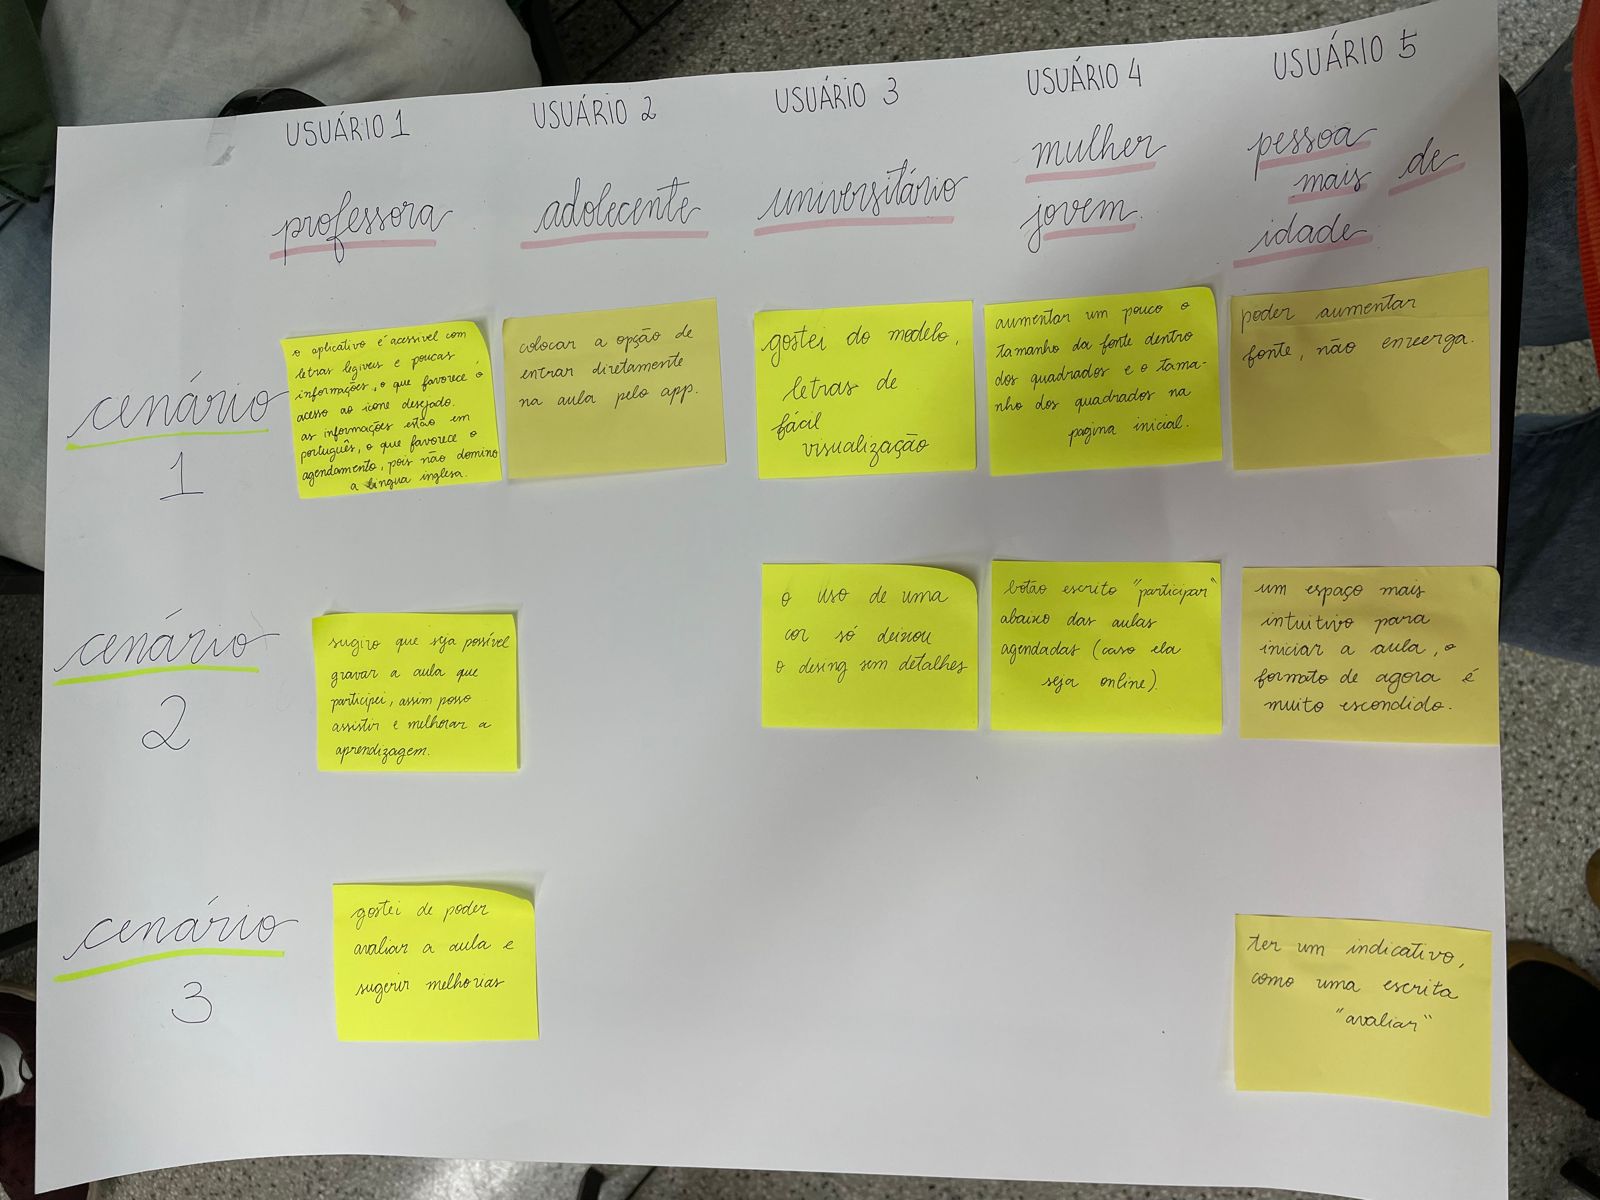 USUÁRIO 1
professora
USUÁRIO 2
adolecente
USUÁRIO 3
universitário
USUÁRIO 4
mulher
jovem
USUÁRIO 5
pessoa
mais de
idade
cenário
1
o aplicativo é acessivel com
letras legiveis e poucas
informações, o que favorece o
acesso ao icone desejado.
as informações estão em
português, o que favorece o
agendamento, pois não domino
a língua inglesa.
colocar a opção de
entrar diretamente
na aula pelo app.
gostei do modelo,
letras de
fácil
visualização
aumentar um pouco o
tamanho da fonte dentro
dos quadrados e o tama-
nho dos quadrados na
pagina inicial.
poder aumentar
fonte, não enxerga.
cenário
2
sugiro que seja possível
gravar a aula que
participei, assim posso
assistir e melhorar a
aprendizagem.
o uso de uma
cor só deixou
o desing sem detalhes
botão escrito "participar"
abaixo das aulas
agendadas (caso ela
seja online).
um espaço mais
intuitivo para
iniciar a aula, o
formato de agora é
muito escondido.
cenário
3
gostei de poder
avaliar a aula e
sugerir melhorias
ter um indicativo,
como uma escrita
"avaliar"